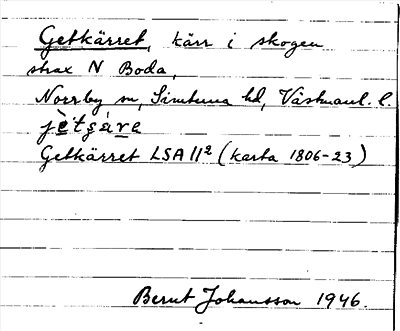 Getkärret, kärr i skogen
strax N Boda,
Norrby sn, Simtuna hd, Västmanl. l.
jètsàre
Getkärret LSA 11² (karta 1806-23)
Bernt Johansson 1946.